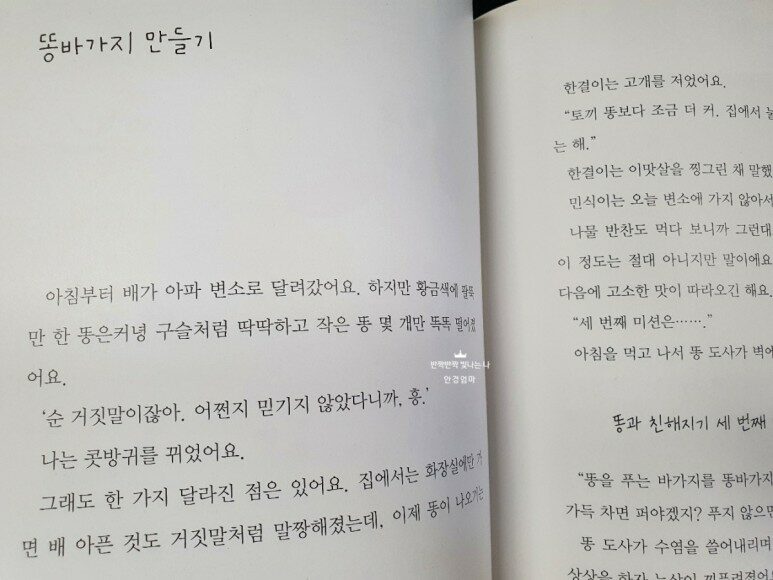 똥바가지 만들기
아침부터 배가 아파 변소로 달려갔어요. 하지만 황금색에 팔뚝
만 한 똥은커녕 구슬처럼 딱딱하고 작은 똥 몇 개만 똑똑 떨어졌
어요.
‘순 거짓말이잖아. 어쩐지 믿기지 않았다니까, 흥.’
나는 콧방귀를 뀌었어요.
그래도 한 가지 달라진 점은 있어요. 집에서는 화장실에만 가
면 배 아픈 것도 거짓말처럼 말짱해졌는데, 이제 똥이 나오기는
반짝반짝 빛나는 나
안경엄마
한결이는 고개를 저었어요.
“토끼 똥보다 조금 더 커. 집에서
는 해.”
한결이는 이맛살을 찡그린 채 말했
민식이는 오늘 변소에 가지 않아서
나물 반찬도 먹다 보니까 그런대
이 정도는 절대 아니지만 말이에요
다음에 고소한 맛이 따라오긴 해요.
“세 번째 미션은…….”
아침을 먹고 나서 똥 도사가 벽에
똥과 친해지기 세 번째
“똥을 푸는 바가지를 똥바가지
가득 차면 퍼야겠지? 푸지 않으면
똥 도사가 수염을 쓸어내리며